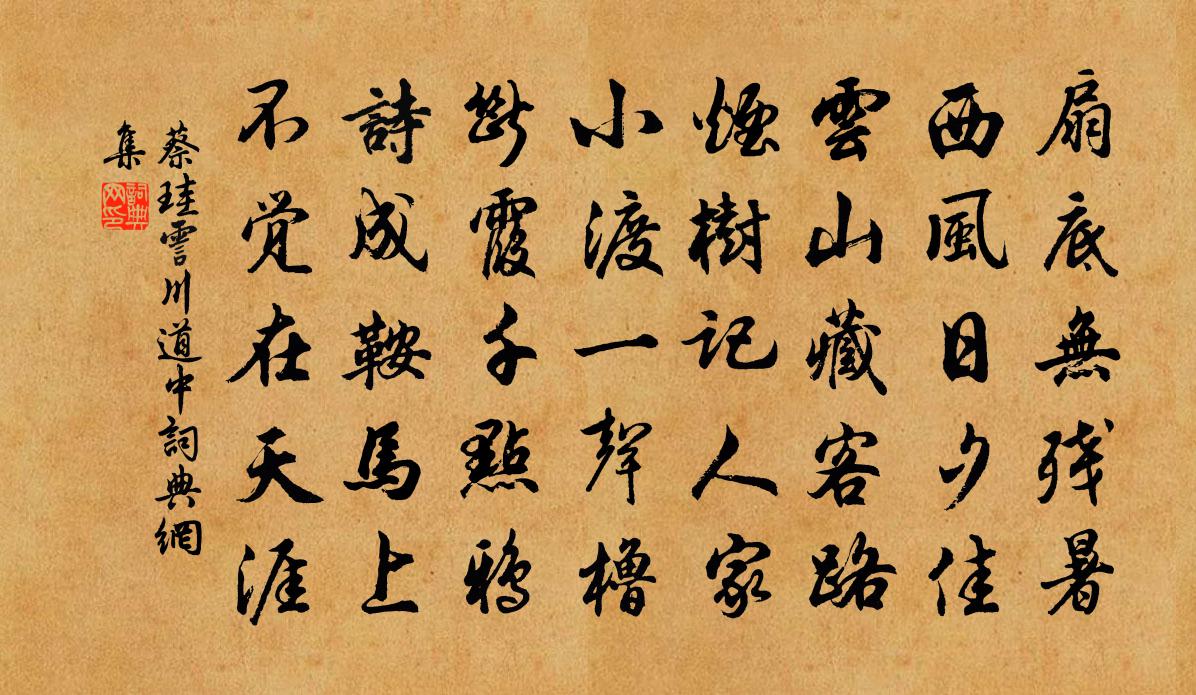 扇底無残暑
西風日夕佳
雲山藏客路
煙樹記人家
小渡一聲櫓
斷霞千點鴉
詩成鞍馬上
不覺在天涯
蔡珪雪川道中詞典網
集
詞典
网印